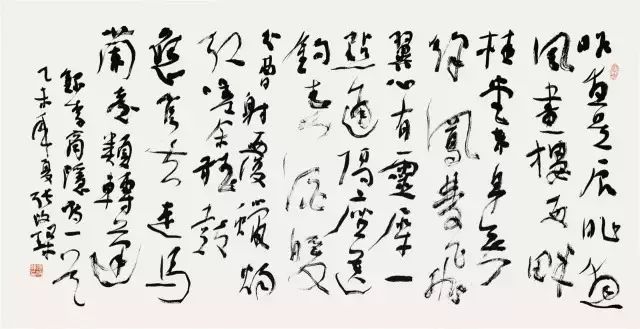 昨夜星辰昨夜
風畫樓西畔
桂堂東身無
彩鳳雙飛
翼心有靈犀一
點通隔座送
鉤春酒暖
分曹射覆蠟燈
紅嗟余聽鼓
應官去走馬
蘭臺類轉蓬
錄李商隱詩一首
乙未年夏張改琴